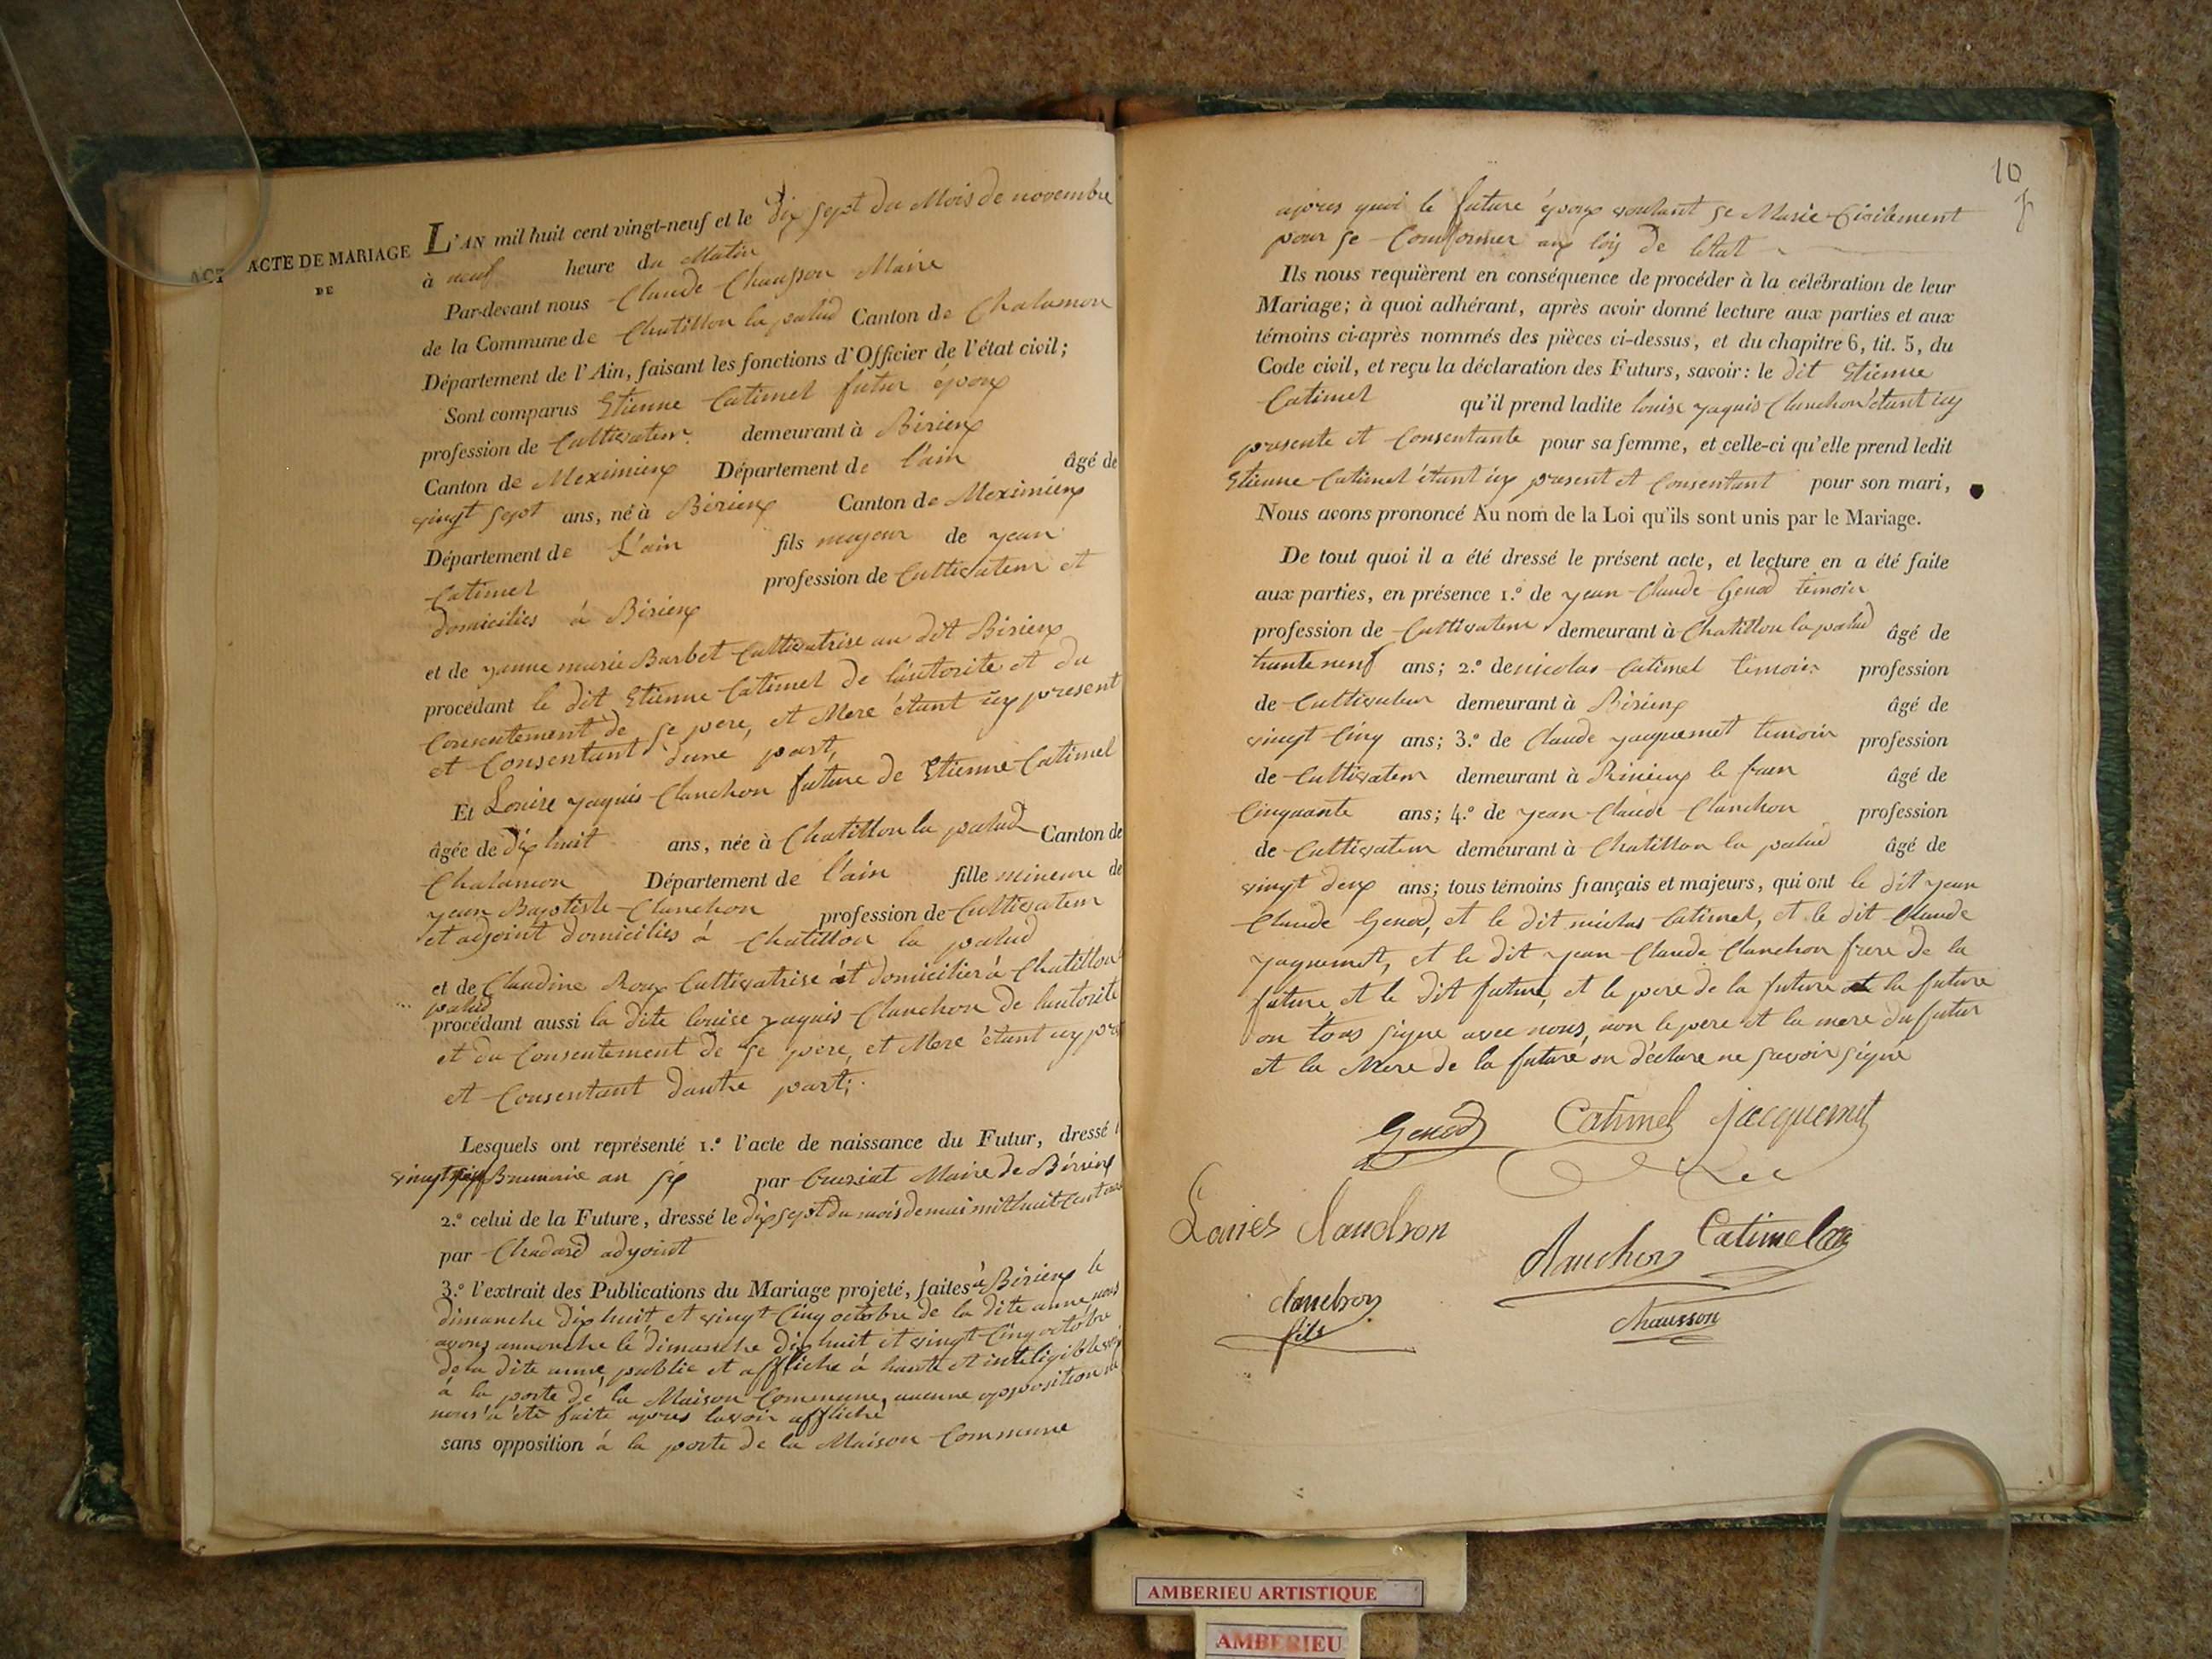 ACTE DE MARIAGE
DE
L'AN mil huit cent vingt-neuf et le dix sept du Mois de novembre
à neuf heure du Matin
Par-devant nous Claude Chausson Maire
de la Commune de Chatillon la palud Canton de Chalamon
Département de l'Ain, faisant les fonctions d'Officier de l'état civil;
Sont comparus Etienne Catimel futur époux
profession de Cultivateur demeurant à Birieux
Canton de Meximieux Département de l'ain âgé de
vingt sept ans, né à Birieux Canton de Meximieux
Département de L'ain fils majeur de jean
Catimel profession de Cultivateur et
domiciliés à Birieux
et de jeanne marie Barbet Cultivatrise au dit Birieux
procédant le dit Etienne Catimel de l'autorite et du
Consentement de se pere, et Mere étant icy present
et Consentant d'une part,
Et Louise jaquis Clanchon future de Etienne Catimel
âgée de dix huit ans, née à Chatillon la palud Canton de
Chalamon Département de l'ain fille mineure de
jean Baptiste Clanchon profession de Cultivateur
et adjoint domiciliés à Chatillon la palud
et de Claudine Roux Cultivatrise et domicilier à Chatillon
palud
procédant aussi la dite louise jaquis Clanchon de lautorite
et du Consentement de se pere, et Mere étant icy pre
et Consentant dautre part;
Lesquels ont représenté 1.º l'acte de naissance du Futur, dressé l
Brumaire an six par Cruziat Maire de Birieux
2.º celui de la Future, dressé le dix sept du mois de mai mil huit cent
par Chadard adjoint
3.º l'extrait des Publications du Mariage projeté, faites à Birieux le
dimanche dix huit et vingt Cinq octobre de la dite anne, nous
avons le dimanche dix huit et vingt Cinq octobre
de la dite anne public et affliche à haute et inteligible
à la porte de la Maison Commune, aucune opposition
nous a été faite apres lavoir affliché
sans opposition à la porte de la Maison Commune
10
apres quoi le future époux voulant se Marie Civilement
pour se Comformer aux lois de létat
Ils nous requièrent en conséquence de procéder à la célébration de leur
Mariage; à quoi adhérant, après avoir donné lecture aux parties et aux
témoins ci-après nommés des pièces ci-dessus, et du chapitre 6, tit. 5, du
Code civil, et reçu la déclaration des Futurs, savoir: le dit Etienne
Catimel qu'il prend ladite louise jaquis Clanchon étant icy
presente et Consentante pour sa femme, et celle-ci qu'elle prend ledit
Etienne Catimel étant icy present et Consentant pour son mari,
Nous avons prononcé Au nom de la Loi qu'ils sont unis par le Mariage.
De tout quoi il a été dressé le présent acte, et lecture en a été faite
aux parties, en présence 1.º de jean Claude Genod temoin
profession de Cultivateur demeurant à Chatillon la palud âgé de
trante neuf ans; 2.º de nicolas Catimel temoin profession
de Cultivateur demeurant à Birieux âgé de
vingt Cinq ans; 3.º de Claude jaquemet temoin profession
de Cultivateur demeurant à Rinieux le fran âgé de
Cinquante ans; 4.º de jean Claude Clanchon profession
de Cultivateur demeurant à Chatillon la palud âgé de
vingt deux ans; tous témoins français et majeurs, qui ont le dit jean
Claude Genod, et le dit nicolas Catimel, et le dit Claude
jaquemet, et le dit jean Claude Clanchon frere de la
future, et le dit future, et le pere de la future et la future
on tous signe avec nous, non le pere et la mere du futur
et la Mere de la future on déclare ne savoir signé
Genod Catimel jacquemet
Louies clanchon
clanchon Catimel
clanchon
fils
chausson
AMBERIEU ARTISTIQUE
AMBERIEU